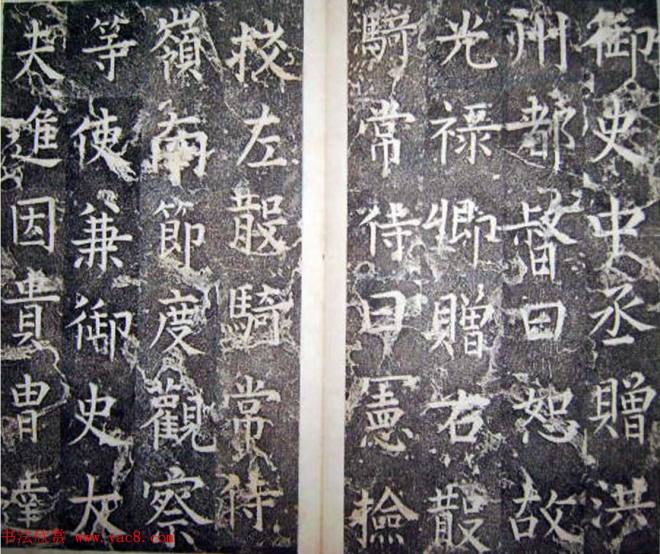 御史中丞贈洪
州都督曰恕故
光祿卿贈右散
騎常侍曰憲檢
挍左散騎常侍
嶺南節度觀察
等使兼御史大
夫進因貴胄達
书法欣赏 www.yac8.com